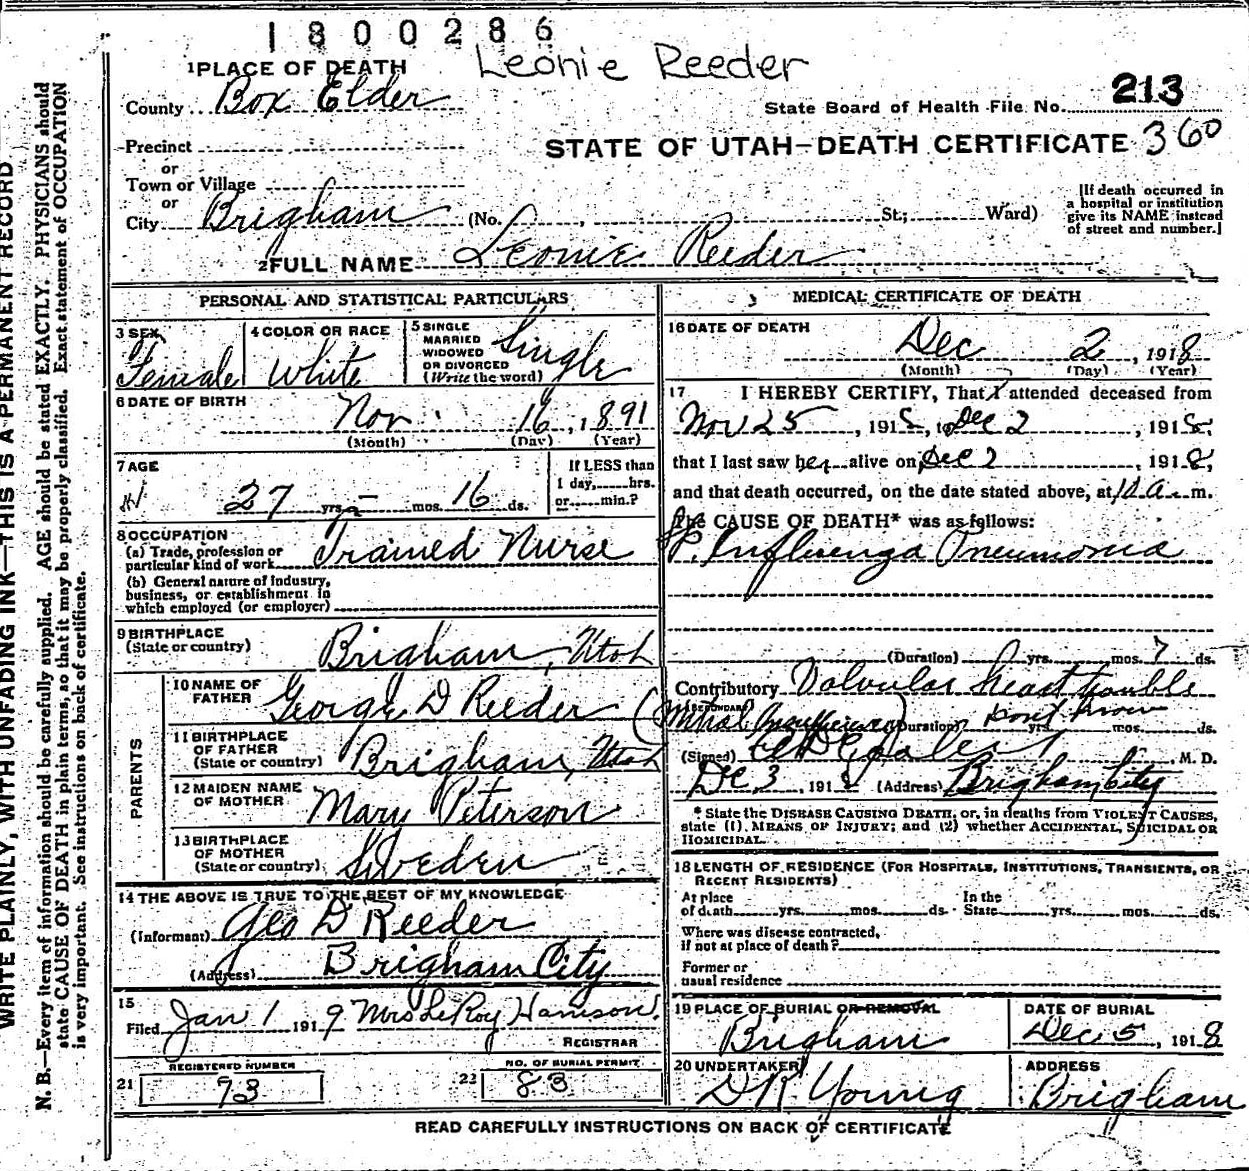 1800286
Leonie Reeder
1 PLACE OF DEATH
County Box Elder
State Board of Health File No. 213
Precinct
STATE OF UTAH—DEATH CERTIFICATE 360
or
Town or Village
or
City Brigham (No. , St; Ward)
[If death occurred in
a hospital or institution
give its NAME instead
of street and number.]
2 FULL NAME Leonie Reeder
PERSONAL AND STATISTICAL PARTICULARS
3 SEX Female
4 COLOR OR RACE White
5 SINGLE
MARRIED
WIDOWED
OR DIVORCED
(Write the word) Single
6 DATE OF BIRTH Nov 16, 1891
(Month) (Day) (Year)
7 AGE
27 yrs. – mos. 16 ds.
If LESS than
1 day, hrs.
or min.?
8 OCCUPATION
(a) Trade, profession or
particular kind of work Trained Nurse
(b) General nature of industry,
business, or establishment in
which employed (or employer)
9 BIRTHPLACE
(State or country) Brigham, Utah
PARENTS
10 NAME OF
FATHER George D Reeder
11 BIRTHPLACE
OF FATHER
(State or country) Brigham, Utah
12 MAIDEN NAME
OF MOTHER Mary Peterson
13 BIRTHPLACE
OF MOTHER
(State or country) Sweden
14 THE ABOVE IS TRUE TO THE BEST OF MY KNOWLEDGE
(Informant) Geo D Reeder
(Address) Brigham City
15
Filed Jan 1 1919 Mrs LeRoy Harrison
REGISTRAR
21 REGISTERED NUMBER
93
22 NO. OF BURIAL PERMIT
83
MEDICAL CERTIFICATE OF DEATH
16 DATE OF DEATH
Dec 2, 1918
(Month) (Day) (Year)
17 I HEREBY CERTIFY, That I attended deceased from
Nov 25, 1918, to Dec 2, 1918,
that I last saw her alive on Dec 2, 1918,
and that death occurred, on the date stated above, at 10 a. m.
The CAUSE OF DEATH* was as follows:
Influenza Pneumonia
(Duration) yrs. mos. 7 ds.
Contributory Valvular heart trouble
(SECONDARY)
(Mitral Insufficiency) (Duration) dont know yrs. mos. ds.
(Signed) M. D.
Dec 3, 1918 (Address) Brigham City
* State the DISEASE CAUSING DEATH, or, in deaths from VIOLENT CAUSES,
state (1) MEANS OF INJURY; and (2) whether ACCIDENTAL, SUICIDAL OR
HOMICIDAL.
18 LENGTH OF RESIDENCE (FOR HOSPITALS, INSTITUTIONS, TRANSIENTS, OR
RECENT RESIDENTS)
At place
of death yrs. mos. ds.
In the
State yrs. mos. ds.
Where was disease contracted,
if not at place of death?
Former or
usual residence
19 PLACE OF BURIAL OR REMOVAL
Brigham
DATE OF BURIAL
Dec 5, 1918
20 UNDERTAKER
D R Young
ADDRESS
Brigham
READ CAREFULLY INSTRUCTIONS ON BACK OF CERTIFICATE
WRITE PLAINLY, WITH UNFADING INK—THIS IS A PERMANENT RECORD
N. B.—Every item of information should be carefully supplied. AGE should be stated EXACTLY. PHYSICIANS should
state CAUSE OF DEATH in plain terms, so that it may be properly classified. Exact statement of OCCUPATION
is very important. See instructions on back of certificate.